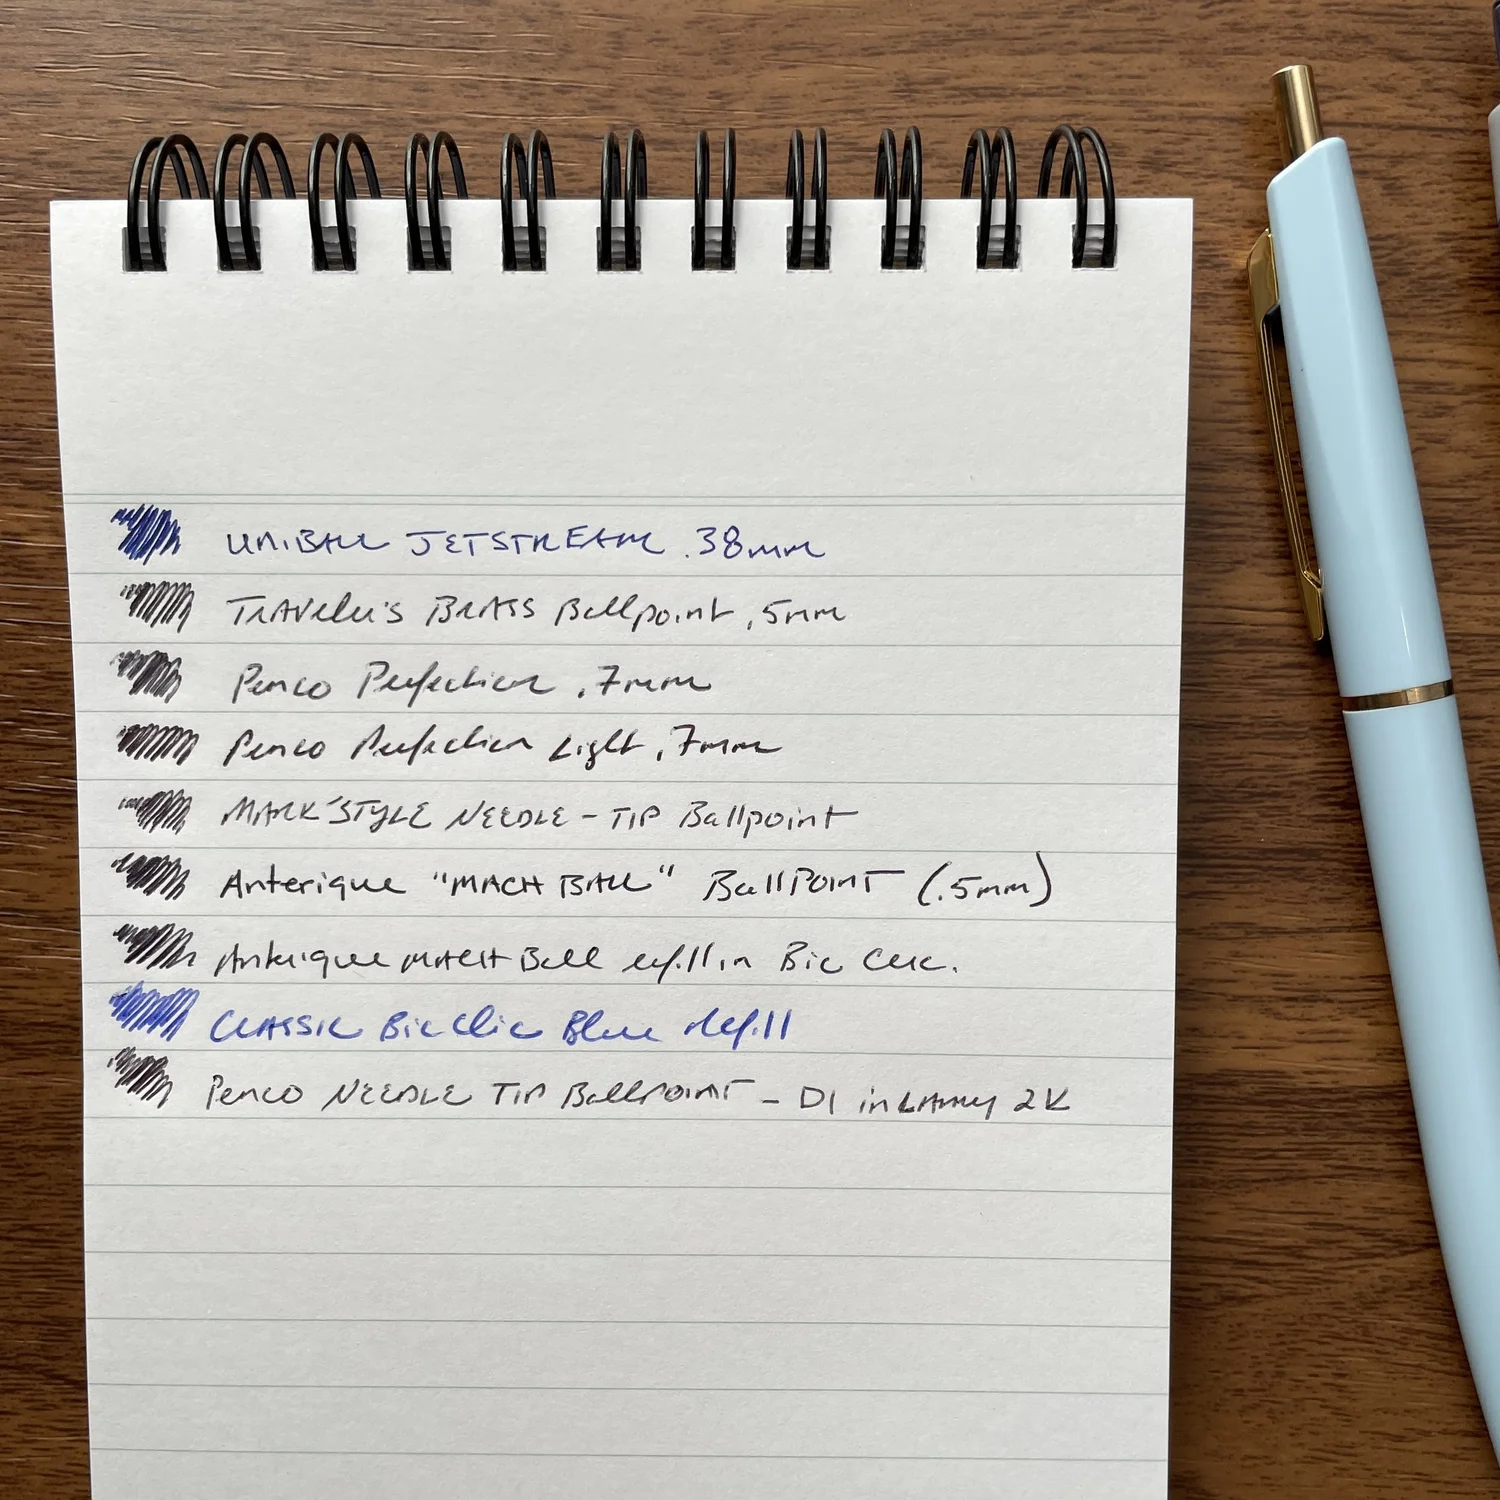 UNIBALL JETSTREAM .38mm
TRAVELER'S BRASS Ballpoint .5mm
Penco Perfection .7mm
Penco Perfection Light .7mm
MARK'STYLE NEEDLE-TIP Ballpoint
Anterique "MACH BALL" BallPOINT (.5mm)
Anterique MACH Ball refill in Bic Clic.
CLASSIC Bic Clic Blue refill
Penco NEEDLE TIP BallPOINT - D1 in LAMY 2K